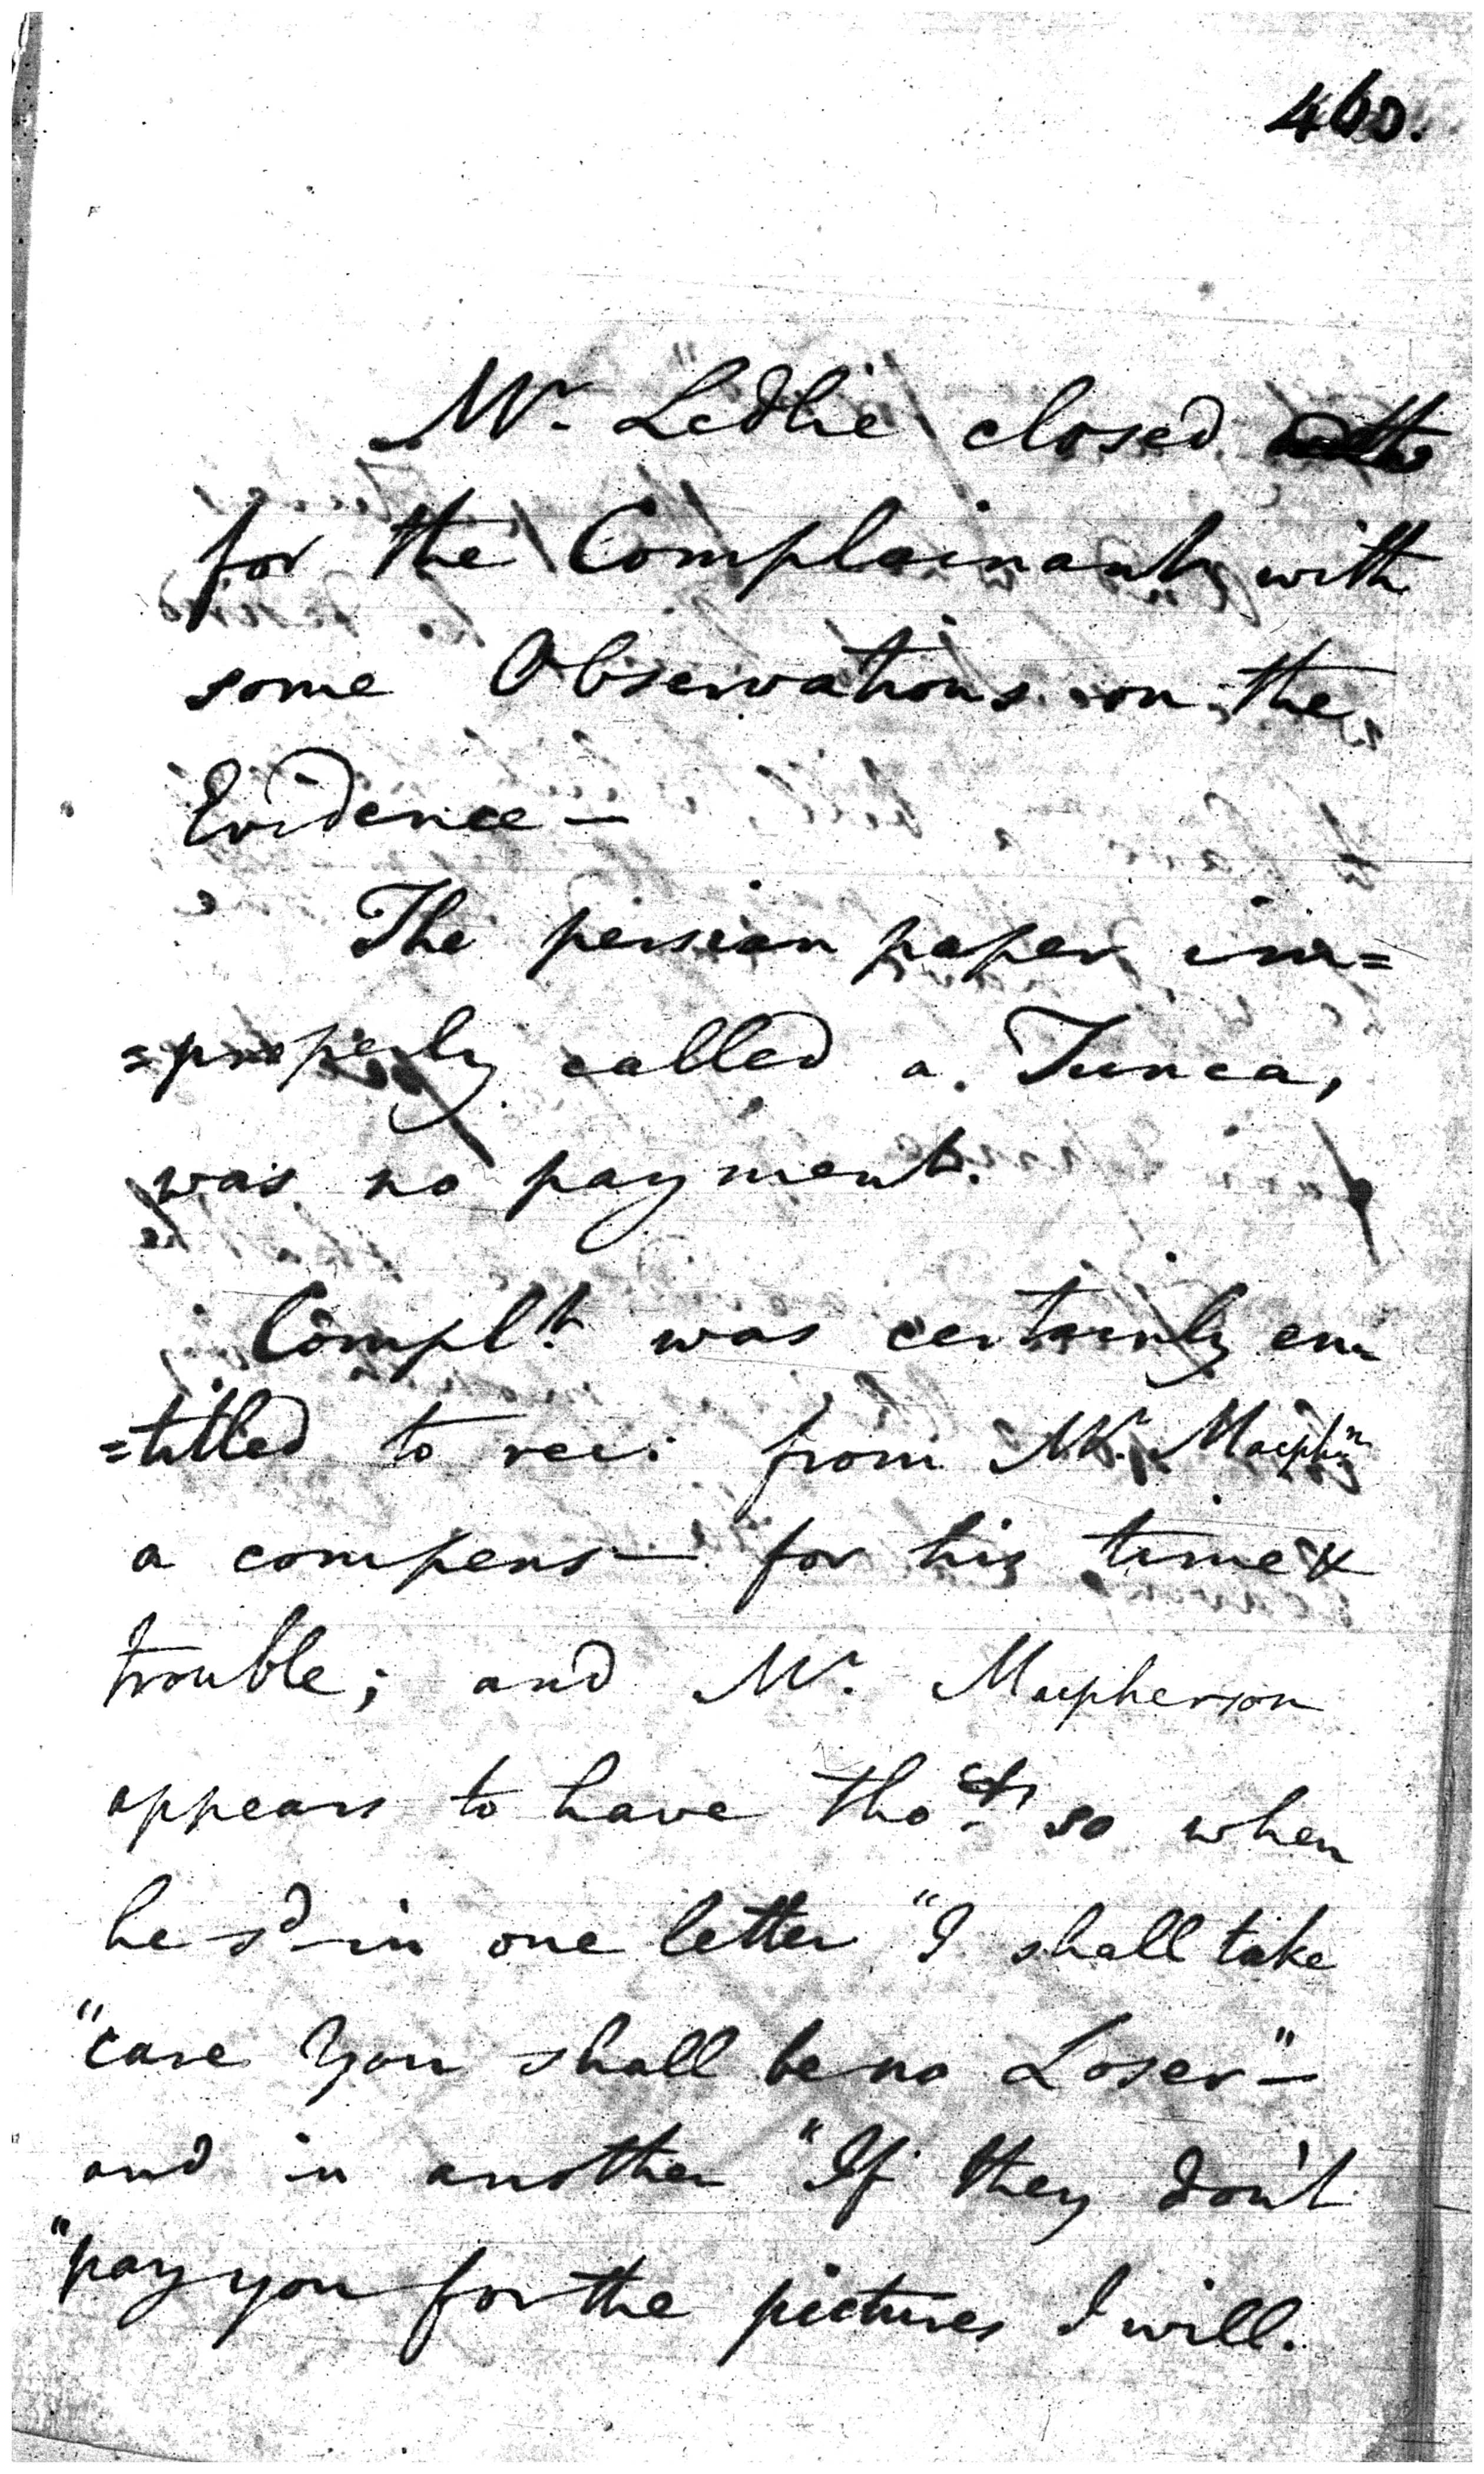 460.
Mr. Ledlie closed
for the Complainant with
some Observations on the
Evidence —
The persian paper im=
=properly called a Tunca,
was no payment.
Complt. was certainly en-
=titled to rec: from Mr. Macphn
a compens— for his time &
trouble; and Mr. Macpherson
appears to have thot. so when
he sd in one letter "I shall take
"care You shall be no Loser" —
and in another "If they don't
"pay you for the pictures I will.